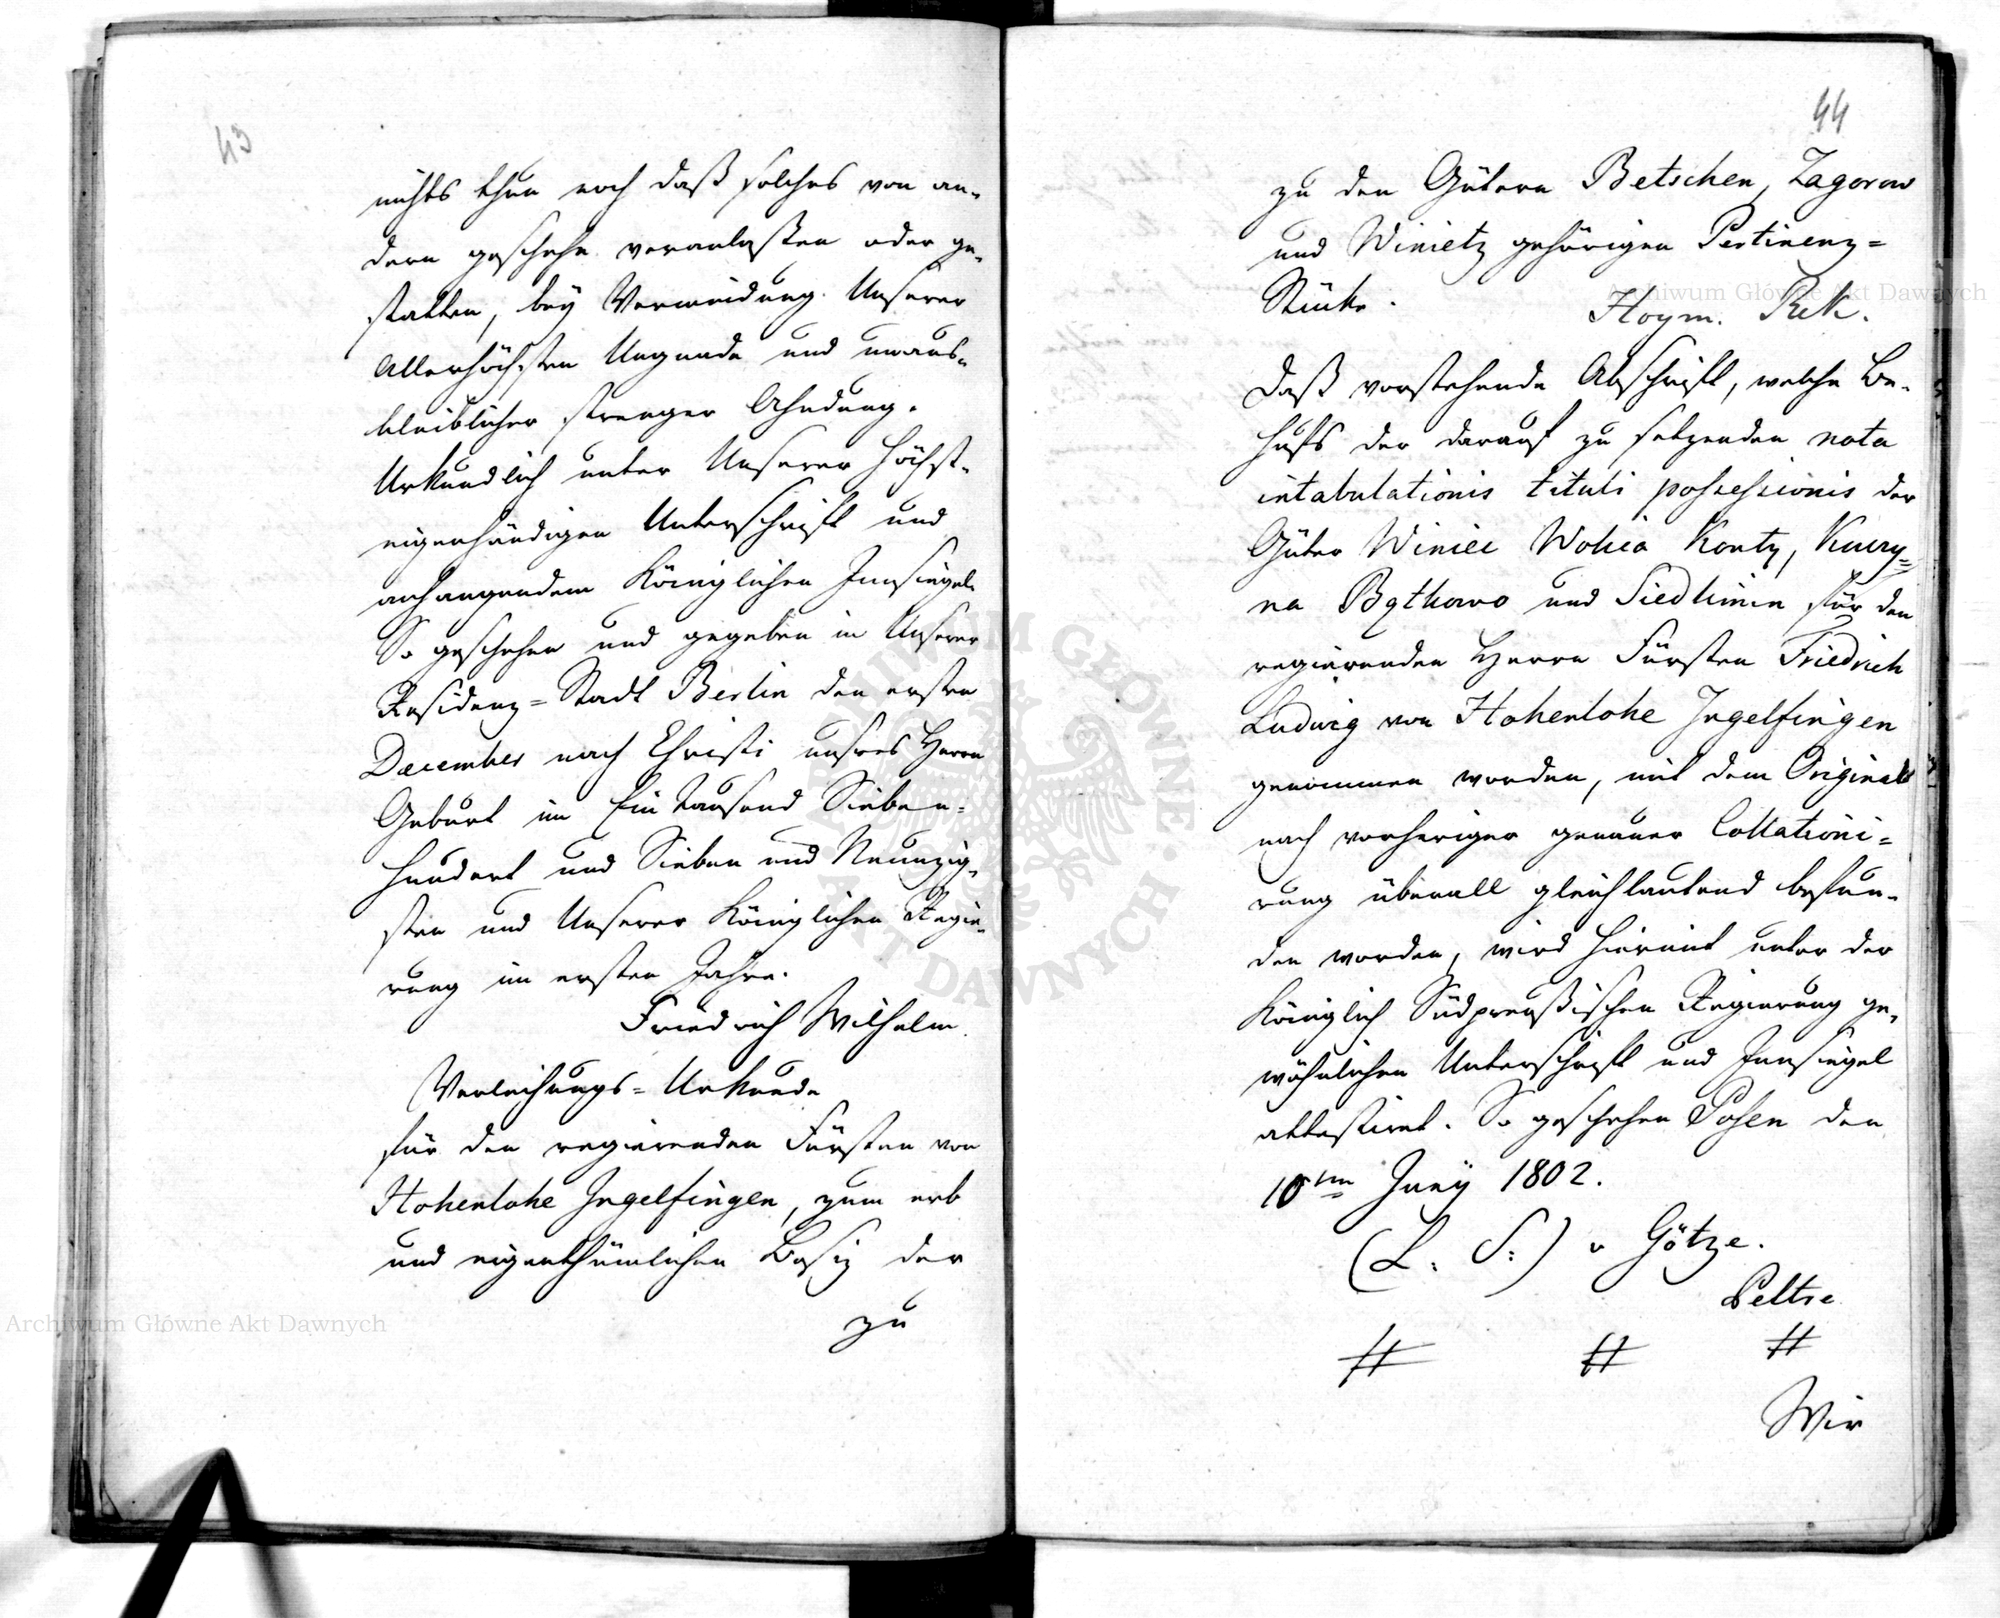 43
nichts thun noch daß solches von an-
dern geschehe veranlaßen oder ge-
statten, bey Vermeidung Unserer
Allerhöchsten Ungnade und unaus-
bleiblicher strenger Ahndung.
Urkundlich unter Unserer Höchst-
eigenhändigen Unterschrift und
anhangendem Königlichen Innsiegel.
So geschehen und gegeben in Unserer
Residenz-Stadt Berlin den ersten
December nach Christi unsres Herrn
Geburt im Ein Tausend Sieben-
hundert und Sieben und Neunzig-
sten und Unserer Königlichen Regie-
rung im ersten Jahre.
Friedrich Wilhelm.
Verleihungs-Urkunde
für den regierenden Fürsten von
Hohenlohe Ingelfingen, zum erb
und eigenthümlichen Besiz der
zu
44
zu den Gütern Betschen, Zagorow
und Winietz gehörigen Pertinenz=
Stücke.
Hoym.
Daß vorstehende Abschrift, welche Be-
hufs der darauf zu setzenden nota
intabulationis tituli possessionis der
Güter Winiec Wolica Kontz, Kuczy=
na und Siedlimin für den
regierenden Herrn Fürsten Friedrich
Ludwig von Hohenlohe Ingelfingen
genommen worden, mit dem Original
nach vorheriger genauer Collationi=
rung überall gleichlautend befun-
den worden, wird hiermit unter der
Königlich Südpreußischen Regierung ge-
wöhnlichen Unterschrift und Innsiegel
attestiret. So geschehen Posen den
10ten Juny 1802.
(L. S.) v Götze.
Peltre
# # #
Wir
Archiwum Główne Akt Dawnych
Archiwum Główne Akt Dawnych
ARCHIWUM GŁÓWNE AKT DAWNYCH